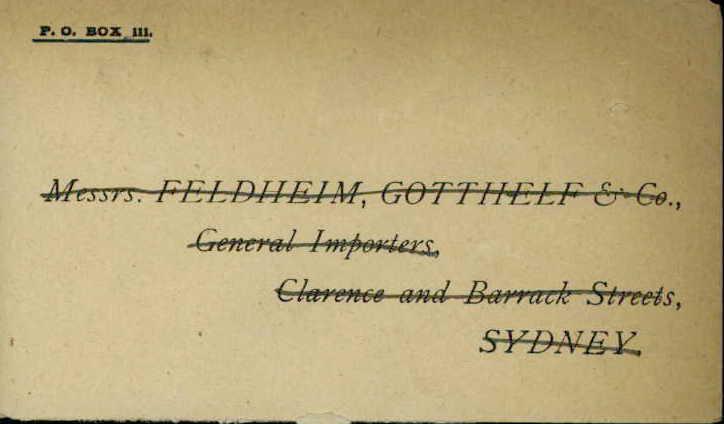 P. O. BOX 111.
Messrs. FELDHEIM, GOTTHELF & Co.,
General Importers,
Clarence and Barrack Streets,
SYDNEY.